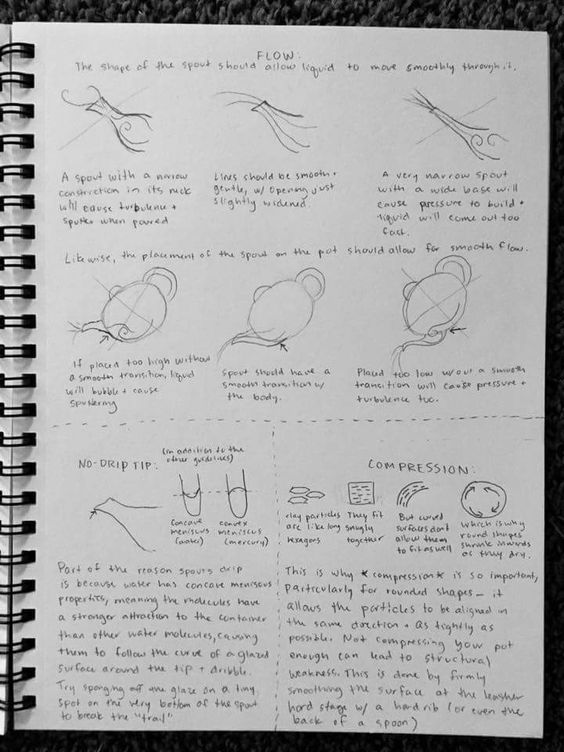 FLOW:
The shape of the spout should allow liquid to move smoothly through it.
A spout with a narrow
constriction in its neck
will cause turbulence +
sputter when poured
Lines should be smooth +
gentle, w/ opening just
slightly widened.
A very narrow spout
with a wide base will
cause pressure to build +
liquid will come out too
fast.
Likewise, the placement of the spout on the pot should allow for smooth flow.
If placed too high without
a smooth transition, liquid
will bubble + cause
sputtering
Spout should have a
smooth transition w/
the body.
Placed too low w/out a smooth
transition will cause pressure +
turbulence too.
NO-DRIP TIP:
(in addition to the
other guidelines)
concave
meniscus
(water)
convex
meniscus
(mercury)
Part of the reason spouts drip
is because water has concave meniscus
properties, meaning the molecules have
a stronger attraction to the container
than other water molecules, causing
them to follow the curve of a glazed
surface around the tip + dribble.
Try sponging off the glaze on a tiny
spot on the very bottom of the spout
to break the "trail"
COMPRESSION:
clay particles
are like long
hexagons
They fit
snugly
together
But curved
surfaces don't
allow them
to fit as well
which is why
round shapes
shrink inwards
as they dry.
This is why *compression* is so important,
particularly for rounded shapes - it
allows the particles to be aligned in
the same direction + as tightly as
possible. Not compressing your pot
enough can lead to structural
weakness. This is done by firmly
smoothing the surface at the leather
hard stage w/ a hard rib (or even the
back of a spoon)